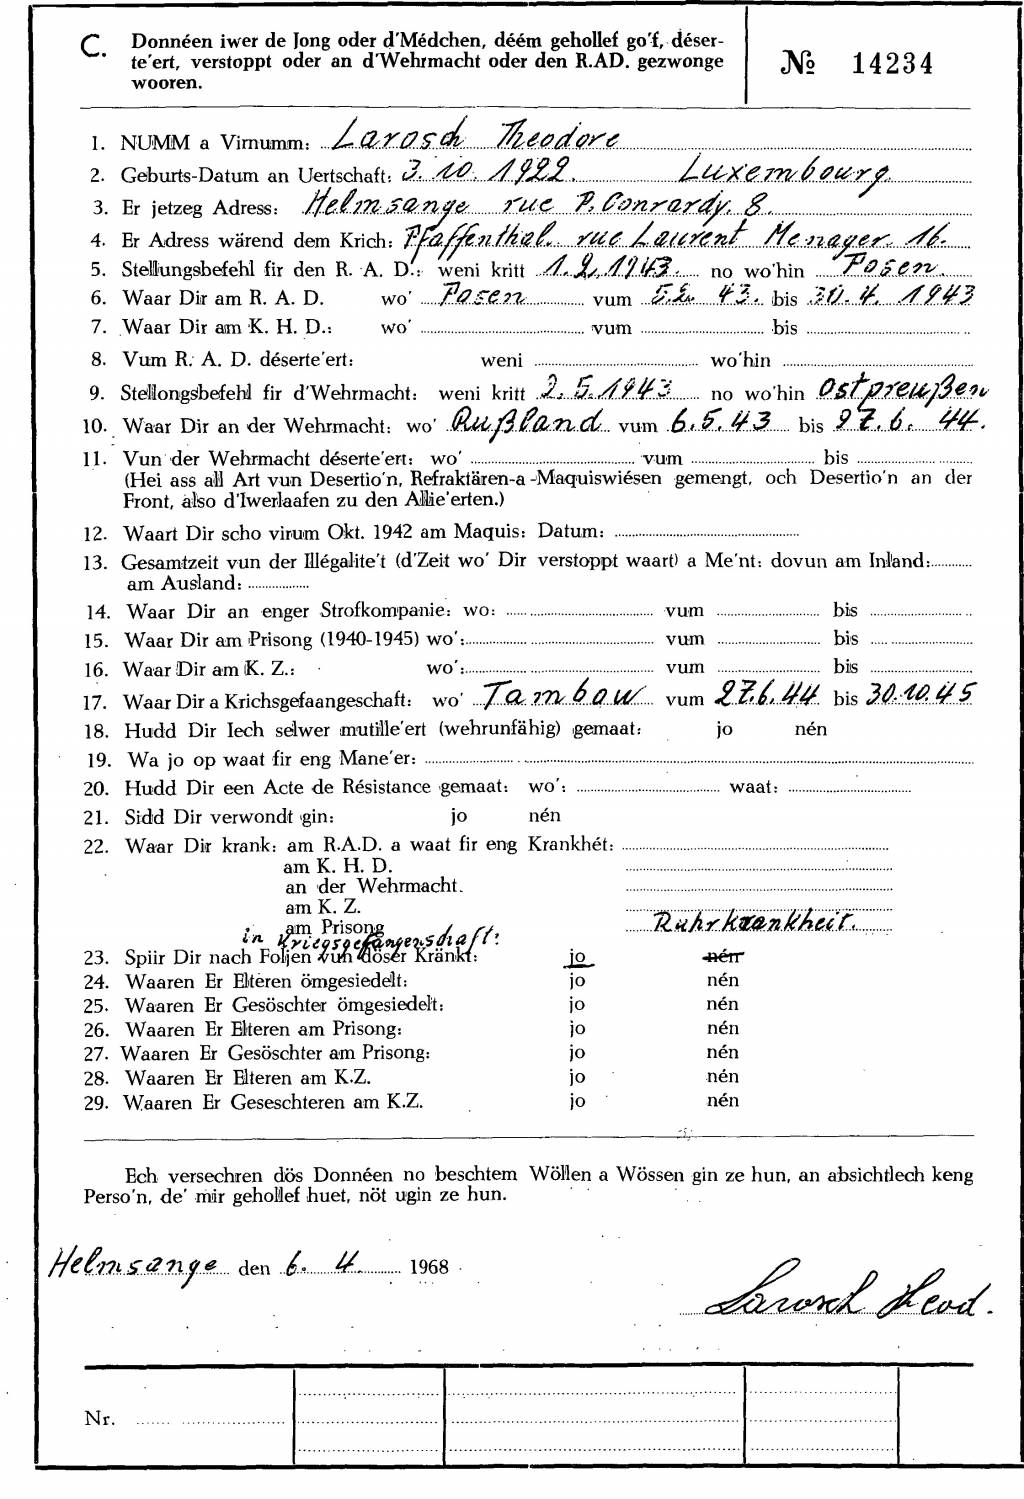 C. Donnéen iwer de Jong oder d'Médchen, déém gehollef go'f, déser-
te'ert, verstoppt oder an d'Wehrmacht oder den R.AD. gezwonge
wooren.
№ 14234
1. NUMM a Virnumm: Larosch Theodore
2. Geburts-Datum an Uertschaft: 3. 10. 1922. Luxembourg.
3. Er jetzeg Adress: Helmsange rue P. Conrardy. 8.
4. Er Adress wärend dem Krich: Pfaffenthal. rue Laurent Menager. 16.
5. Stellungsbefehl fir den R. A. D.: weni kritt 1. 2. 1943. no wo'hin Posen.
6. Waar Dir am R. A. D. wo' Posen vum 5.2. 43. bis 30. 4. 1943
7. Waar Dir am K. H. D.: wo' vum bis
8. Vum R. A. D. déserte'ert: weni wo'hin
9. Stellongsbefehl fir d'Wehrmacht: weni kritt 2. 5. 1943 no wo'hin Ostpreußen
10. Waar Dir an der Wehrmacht: wo' Rußland vum 6. 5. 43 bis 27. 6. 44.
11. Vun der Wehrmacht déserte'ert: wo' vum bis
(Hei ass all Art vun Desertio'n, Refraktären-a-Maquiswiésen gemengt, och Desertio'n an der
Front, also d'Iwerlaafen zu den Allie'erten.)
12. Waart Dir scho virum Okt. 1942 am Maquis: Datum:
13. Gesamtzeit vun der Illégalite't (d'Zeit wo' Dir verstoppt waart) a Me'nt: dovun am Inland:
am Ausland:
14. Waar Dir an enger Strofkompanie: wo: vum bis
15. Waar Dir am Prisong (1940-1945) wo': vum bis
16. Waar Dir am K. Z.: wo': vum bis
17. Waar Dir a Krichsgefaangeschaft: wo' Tambow vum 27.6.44 bis 30.10.45
18. Hudd Dir Iech selwer mutille'ert (wehrunfähig) gemaat: jo nén
19. Wa jo op waat fir eng Mane'er:
20. Hudd Dir een Acte de Résistance gemaat: wo': waat:
21. Sidd Dir verwondt gin: jo nén
22. Waar Dir krank: am R.A.D. a waat fir eng Krankhét:
am K. H. D.
an der Wehrmacht.
am K. Z.
am Prisong Ruhrkrankheit.
in Kriegsgefangenschaft:
23. Spiir Dir nach Foljen vun döser Kränkt: jo nén
24. Waaren Er Elteren ömgesiedelt: jo nén
25. Waaren Er Gesöschter ömgesiedelt: jo nén
26. Waaren Er Elteren am Prisong: jo nén
27. Waaren Er Gesöschter am Prisong: jo nén
28. Waaren Er Elteren am K.Z. jo nén
29. Waaren Er Geseschteren am K.Z. jo nén
Ech versechren dös Donnéen no beschtem Wöllen a Wössen gin ze hun, an absichtlech keng
Perso'n, de' mir gehollef huet, nöt ugin ze hun.
Helmsange den 6. 4. 1968
Larosch Theod.
Nr.